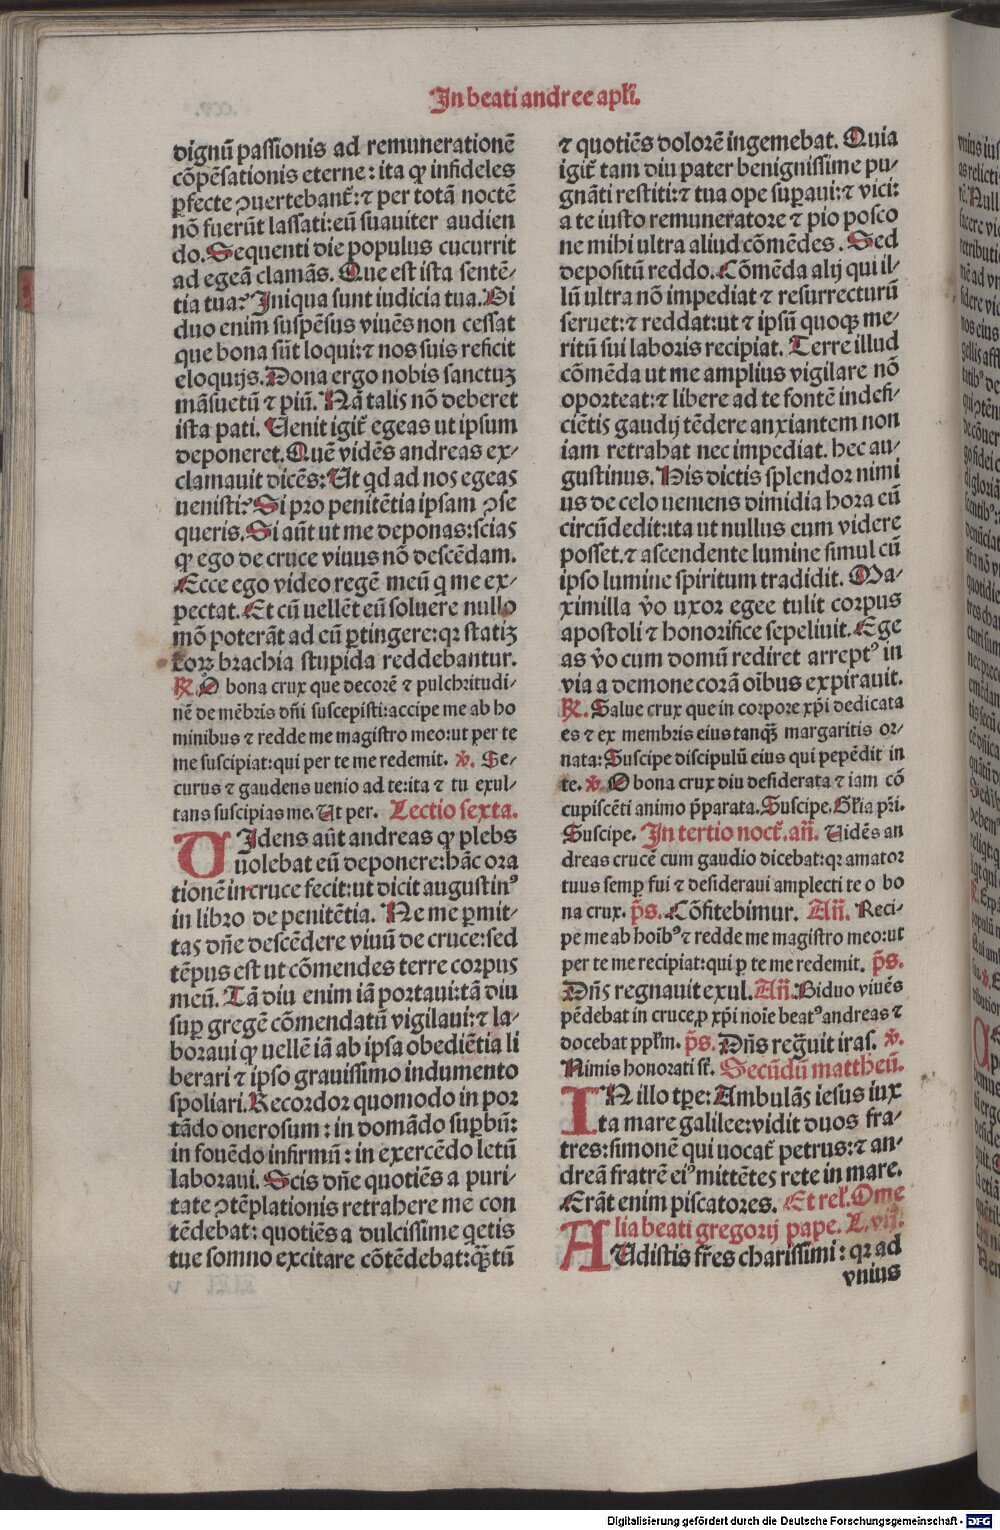 In beati andree apłi.
dignũ passionis ad remunerationẽ
cõpẽsationis eterne: ita ꝙ infideles
ꝑfecte ꝯuertebant᷑: ⁊ per totã noctẽ
nõ fuerũt lassati: eũ suauiter audien
do. Sequenti die populus cucurrit
ad egeã clamãs. Que est ista sentẽ-
tia tua? Iniqua sunt iudicia tua. Bi
duo enim suspẽsus viuẽs non cessat
que bona sũt loqui: ⁊ nos suis reficit
eloquijs. Dona ergo nobis sanctuꝫ
mãsuetũ ⁊ piũ. Nã talis nõ deberet
ista pati. Uenit igit᷑ egeas ut ipsum
deponeret. Quẽ vidẽs andreas ex-
clamauit dicẽs: Ut qd ad nos egeas
uenisti? Si pro penitẽtia ipsam ꝯse
queris. Si aũt ut me deponas: scias
ꝙ ego de cruce viuus nõ descẽdam.
Ecce ego video regẽ meũ q me ex-
pectat. Et cũ uellẽt eũ soluere nullo
mõ poterãt ad eũ ꝑtingere: qꝛ statiꝫ
eorꝝ brachia stupida reddebantur.
℟. O bona crux que decorẽ ⁊ pulchritudi-
nẽ de mẽbris dñi suscepisti: accipe me ab ho
minibus ⁊ redde me magistro meo: ut per te
me suscipiat: qui per te me redemit. ꝟ. Se-
curus ⁊ gaudens uenio ad te: ita ⁊ tu exul-
tans suscipias me. Ut per. Lectio sexta.
VIdens aũt andreas ꝙ plebs
uolebat eũ deponere: hãc ora
tionẽ in cruce fecit: ut dicit augustinꝰ
in libro de penitẽtia. Ne me ꝑmit-
tas dñe descẽdere viuũ de cruce: sed
tẽpus est ut cõmendes terre corpus
meũ. Tã diu enim iã portaui: tã diu
suꝑ gregẽ cõmendatũ vigilaui: ⁊ la-
boraui ꝙ uellẽ iã ab ipsa obediẽtia li
berari ⁊ ipso grauissimo indumento
spoliari. Recordor quomodo in por
tãdo onerosum: in domãdo suꝑbũ:
in fouẽdo infirmũ: in exercẽdo letũ
laboraui. Scis dñe quotiẽs a puri-
tate ꝯtẽplationis retrahere me con
tẽdebat: quotiẽs a dulcissime qetis
tue somno excitare cõtẽdebat: q̃ꝫ tũ
⁊ quotiẽs dolorẽ ingemebat. Quia
igit᷑ tam diu pater benignissime pu-
gnãti restiti: ⁊ tua ope suꝑaui: ⁊ vici:
a te iusto remuneratore ⁊ pio posco
ne mihi ultra aliud cõmẽdes. Sed
depositũ reddo. Cõmẽda alij qui il-
lũ ultra nõ impediat ⁊ resurrecturũ
seruet: ⁊ reddat: ut ⁊ ipsũ quoqꝫ me-
ritũ sui laboris recipiat. Terre illud
cõmẽda ut me amplius vigilare nõ
oporteat: ⁊ libere ad te fontẽ indefi-
ciẽtis gaudij tẽdere anxiantem non
iam retrahat nec impediat. hec au-
gustinus. His dictis splendor nimi
us de celo ueniens dimidia hora eũ
circũdedit: ita ut nullus eum videre
posset. ⁊ ascendente lumine simul cũ
ipso lumine spiritum tradidit. Ma-
ximilla ṽo uxor egee tulit corpus
apostoli ⁊ honorifice sepeliuit. Ege
as ṽo cum domũ rediret arreptꝰ in
via a demone corã oĩbus expirauit.
℟. Salue crux que in corpore xp̃i dedicata
es ⁊ ex membris eius tanqꝫ margaritis or-
nata: Suscipe discipulũ eius qui pepẽdit in
te. ꝟ. O bona crux diu desiderata ⁊ iam cõ
cupiscẽti animo p̃parata. Suscipe. Gl̃ia pr̃i.
Suscipe. In tertio noct᷑. añ. Uidẽs an
dreas crucẽ cum gaudio dicebat: qꝛ amator
tuus semꝑ fui ⁊ desideraui amplecti te o bo
na crux. p̃s. Cõfitebimur. Añ. Reci-
pe me ab hoĩbꝰ ⁊ redde me magistro meo: ut
per te me recipiat: qui ꝑ te me redemit. p̃s.
Dñs regnauit exul. Añ. Biduo viuẽs
pẽdebat in cruce, ꝓ xp̃i noĩe beatꝰ andreas ⁊
docebat ppl̃m. p̃s. Dñs reg̃uit iras. ꝟ.
Nimis honorati st᷑. Secũdũ mattheũ.
IN illo tp̃e: Ambulãs iesus iux
ta mare galilee: vidit duos fra-
tres: simonẽ qui uocat᷑ petrus: ⁊ an-
dreã fratrẽ eiꝰ mittẽtes rete in mare.
Erãt enim piscatores. Et rel̃. Ome
lia beati gregorij pape. L. vij.
AUdistis fr̃es charissimi: qꝛ ad
vnius
Digitalisierung gefördert durch die Deutsche Forschungsgemeinschaft - DFG